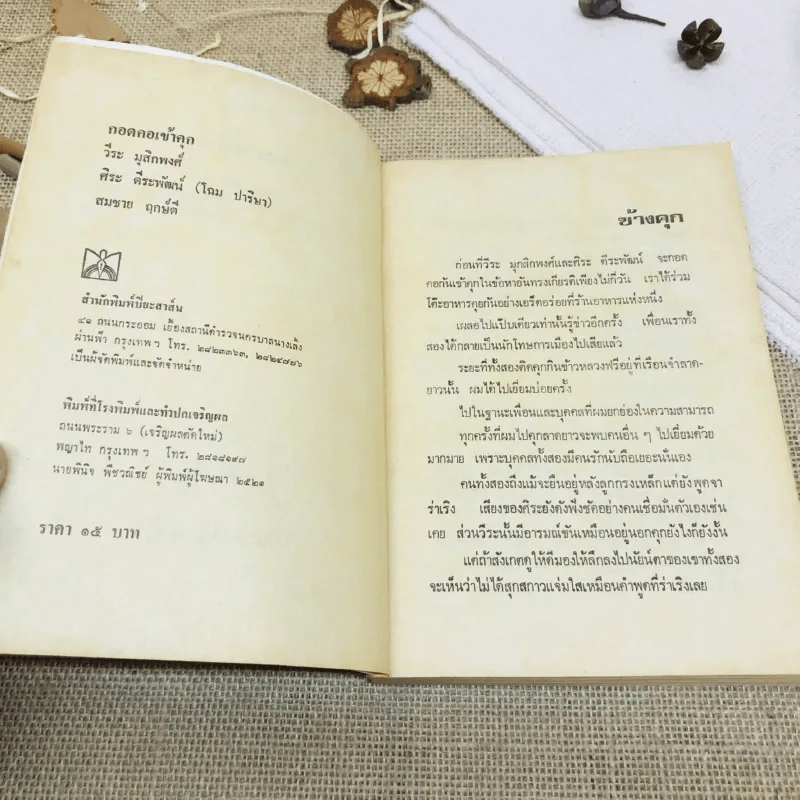 กอดคอเข้าคุก
วีระ มุสิกพงศ์
ศิระ ตีระพัฒน์ (โฉม ปาริษา)
สมชาย ฤกษ์ดี
สำนักพิมพ์ปิยะสาส์น
๔๑ ถนนกระออม เยื้องสถานีตำรวจนครบาลนางเลิ้ง
ผ่านฟ้า กรุงเทพฯ โทร. ๒๘๒๓๓๖๓, ๒๘๒๔๗๘๖
เป็นผู้จัดพิมพ์และจัดจำหน่าย
พิมพ์ที่โรงพิมพ์และทำปกเจริญผล
ถนนพระราม ๖ (เจริญผลตัดใหม่)
พญาไท กรุงเทพฯ โทร. ๒๘๑๘๑๙๗
นายพินิจ พืชวณิชย์ ผู้พิมพ์ผู้โฆษณา ๒๕๒๑
ราคา ๑๕ บาท
ข้างคุก
ก่อนที่วีระ มุกสิกพงศ์และศิระ ตีระพัฒน์ จะกอด
คอกันเข้าคุกในข้อหาอันทรงเกียรติเพียงไม่กี่วัน เราได้ร่วม
โต๊ะอาหารคุยกันอย่างเอร็ดอร่อยที่ร้านอาหารแห่งหนึ่ง
เผลอไปแป๊บเดียวเท่านั้นรู้ข่าวอีกครั้ง เพื่อนเราทั้ง
สองได้กลายเป็นนักโทษการเมืองไปเสียแล้ว
ระยะที่ทั้งสองติดคุกกินข้าวหลวงฟรีอยู่ที่เรือนจำลาด-
ยาวนั้น ผมได้ไปเยี่ยมบ่อยครั้ง
ไปในฐานะเพื่อนและบุคคลที่ผมยกย่องในความสามารถ
ทุกครั้งที่ผมไปคุกลาดยาวจะพบคนอื่น ๆ ไปเยี่ยมด้วย
มากมาย เพราะบุคคลทั้งสองมีคนรักนับถือเยอะนั่นเอง
คนทั้งสองถึงแม้จะยืนอยู่หลังลูกกรงเหล็กแต่ยังพูดจา
ร่าเริง เสียงของศิระยังดังฟังชัดอย่างคนเชื่อมั่นตัวเองเช่น
เคย ส่วนวีระนั้นมีอารมณ์ขันเหมือนอยู่นอกคุกยังไงก็ยังงั้น
แต่ถ้าสังเกตดูให้ดีมองให้ลึกลงไปนัยน์ตาของเขาทั้งสอง
จะเห็นว่าไม่ได้สุกสกาวแจ่มใสเหมือนคำพูดที่ร่าเริงเลย